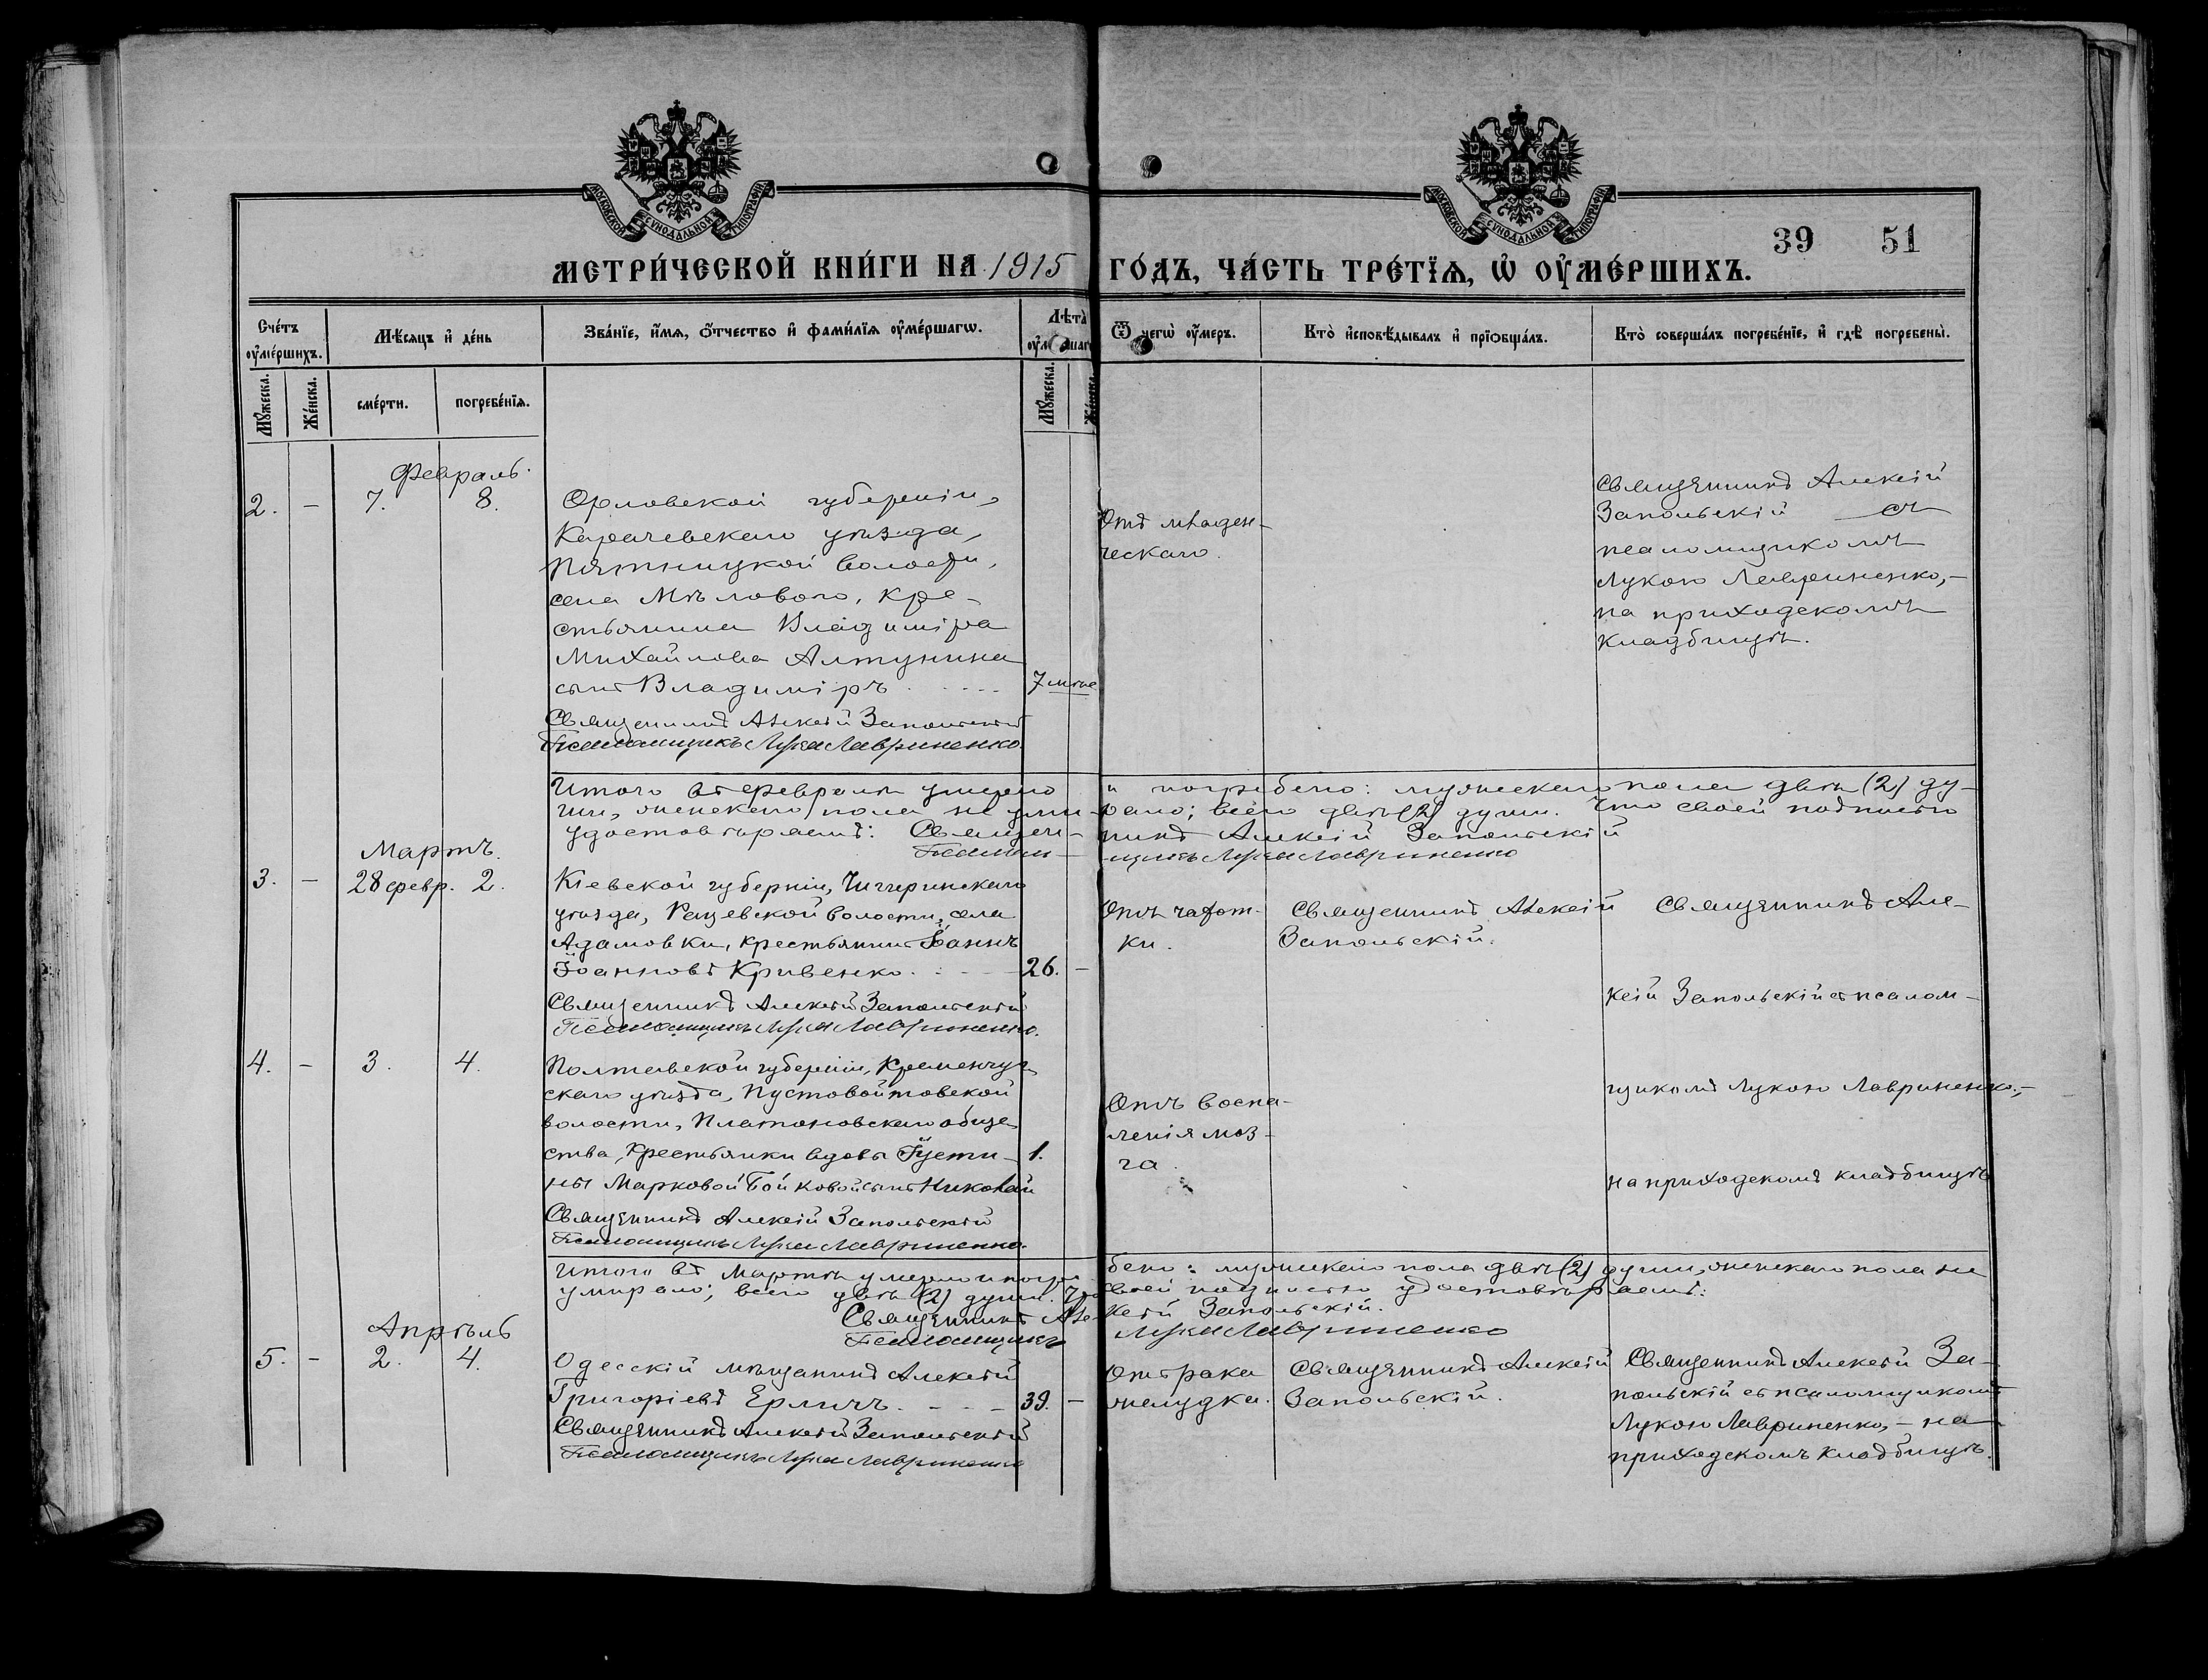 МОСКОВСКОЙ СѴНОДАЛЬНОЙ ТИПОГРАФІИ
МОСКОВСКОЙ СѴНОДАЛЬНОЙ ТИПОГРАФІИ
39 51
МЕТРИ́ЧЕСКОЙ КНИ́ГИ НА 1915 ГО́ДЪ, ЧА́СТЬ ТРЕ́ТЇѦ, Ѡ҆ ОУ҆МЕ́РШИХЪ.
Сче́тъ оу҆ме́ршихъ.
Мѣ́сяцъ и҆ де́нь
Зва́нїе, и҆́мѧ, ѻ҆́тчество и҆ фами́лїѧ оу҆ме́ршагѡ.
Лѣ́та
Ѿ чегѡ̀ оу҆́меръ.
Кто̀ и҆сповѣ́дывалъ и҆ прїѻбща́лъ.
Кто̀ соверша́лъ погребе́нїе, и҆ гдѣ̀ погребены̀.
Мꙋ́жеска.
Же́нска.
сме́рти.
погребе́нїѧ.
Мꙋ́жеска.
Февраль.
2. — 7. 8.
Орловской губерніи,
Карачевскаго уѣзда,
Пятницкой волости,
села Мѣлового, кре-
стьянина Владиміра
Михайлова Алтунина
сынъ Владиміръ . . . . 7 мѣс
Священникъ Алексій Запольскій
Псаломщикъ Лука Лавриненко.
Отъ младен-
ческаго.
Священникъ Алексій
Запольскій — съ
псаломщикомъ
Лукою Лавриненко,—
на приходскомъ
кладбищѣ.
Итого въ февралѣ умерло и погребено: мужескаго пола двѣ (2) ду-
ши, женскаго пола не уми-рало; всего двѣ (2) души. Что своей подписью
удостовѣряемъ: Священ-никъ Алексій Запольскій
Псалом-щикъ Лука Лавриненко
Мартъ.
3. — 28 февр. 2.
Кіевской губерніи, Чигиринскаго
уѣзда, Рацевской волости, села
Адамовки, крестьянинъ Іоаннъ
Іоанновъ Кривенко . . . 26. —
Священникъ Алексій Запольскій
Псаломщикъ Лука Лавриненко.
Отъ чахот-
ки.
Священникъ Алексій
Запольскій.
Священникъ Але-
ксій Запольскій съ псалом-
щикомъ Лукою Лавриненко,—
на приходскомъ кладбищѣ
4. — 3. 4.
Полтавской губерніи, Кременчуг-
скаго уѣзда, Пустовойтовской
волости, Платоновскаго обще-
ства, крестьянки вдовы Іусти- 1.
ны Марковой Бойковой сынъ Николай
Священникъ Алексій Запольскій
Псаломщикъ Лука Лавриненко.
Отъ воспа-
ленія моз-
га.
Итого въ Мартѣ умерло и погре-бено: мужескаго пола двѣ (2) души, женскаго пола не
умирало; всего двѣ (2) души. Что своей подписью удостовѣряемъ:
Священникъ Алексій Запольскій.
Псаломщикъ Лука Лавриненко
Апрѣль
5. — 2. 4.
Одесскій мѣщанинъ Алексій
Григоріевъ Ермичъ. - - - 39. —
Священникъ Алексій Запольскій
Псаломщикъ Лука Лавриненко
Отъ рака
желудка.
Священникъ Алексій
Запольскій.
Священникъ Алексій За-
польскій съ псаломщикомъ
Лукою Лавриненко,— на
приходскомъ кладбищѣ.